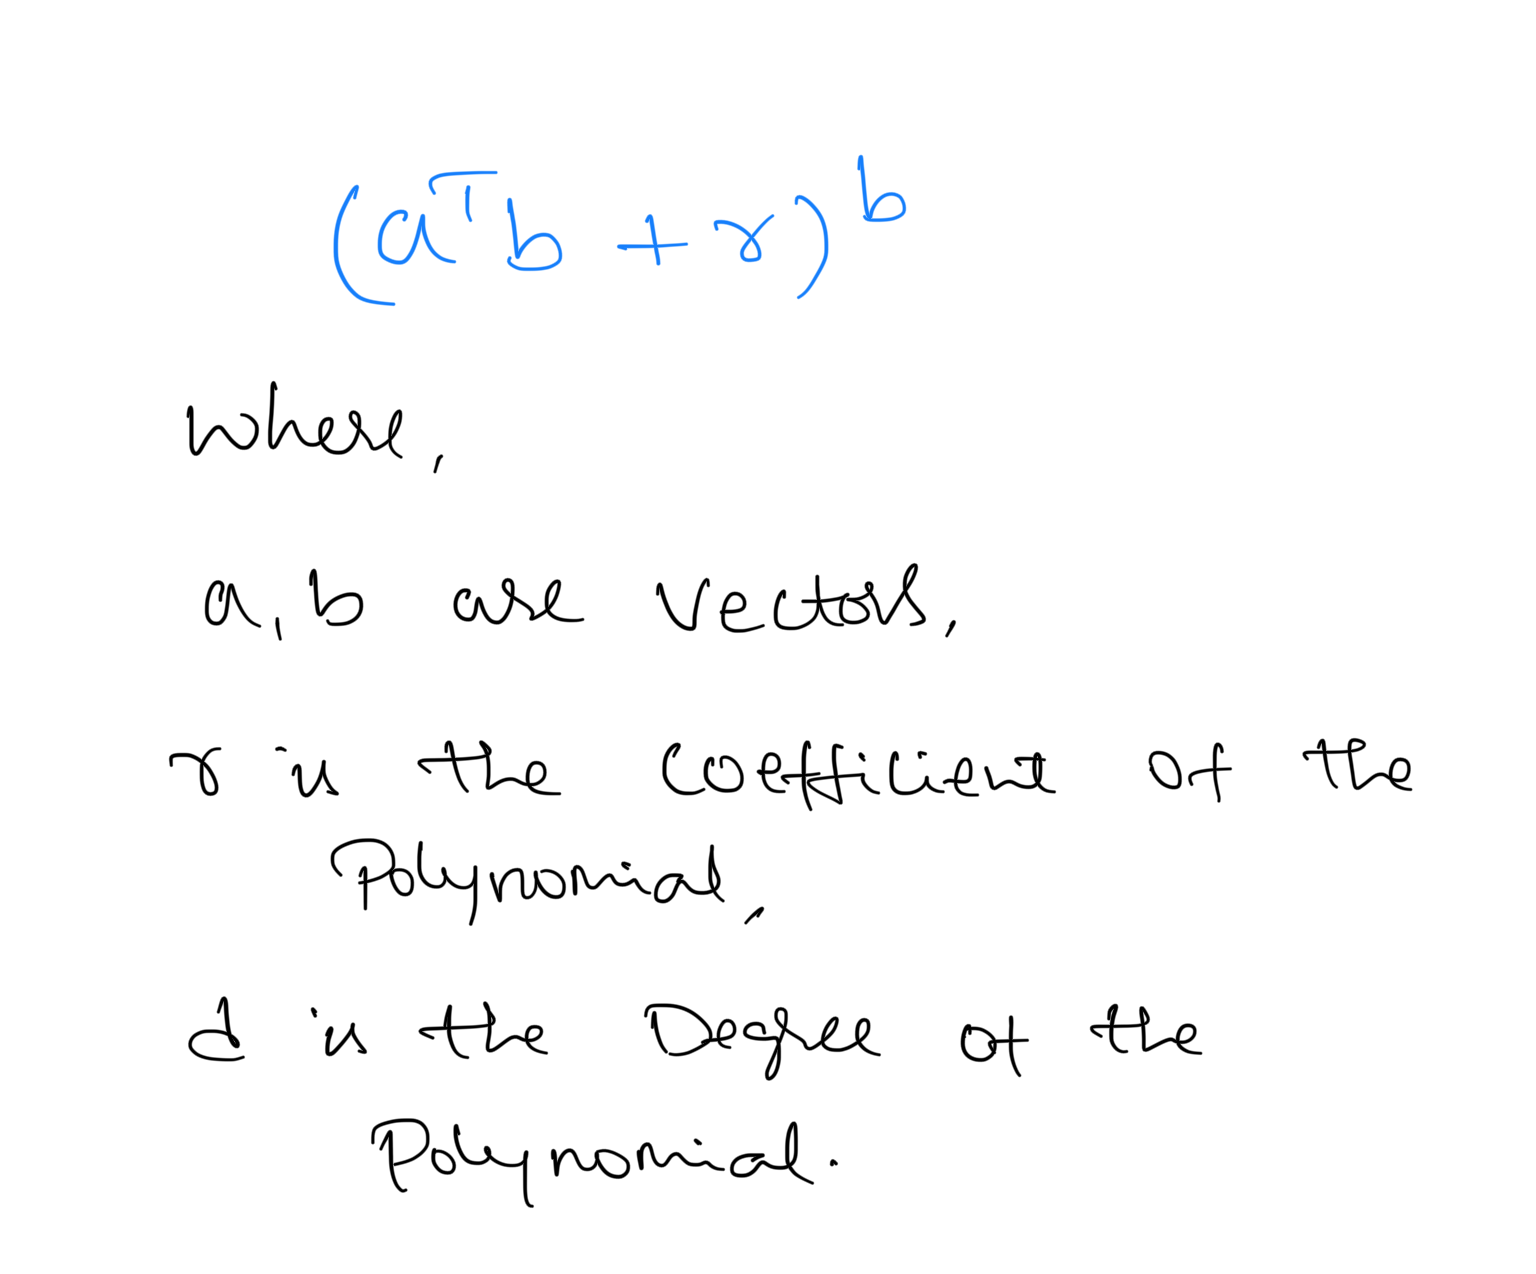 (aᵀb + r)ᵇ
where,
a, b are vectors,
r is the coefficient of the
Polynomial,
d is the Degree of the
Polynomial.